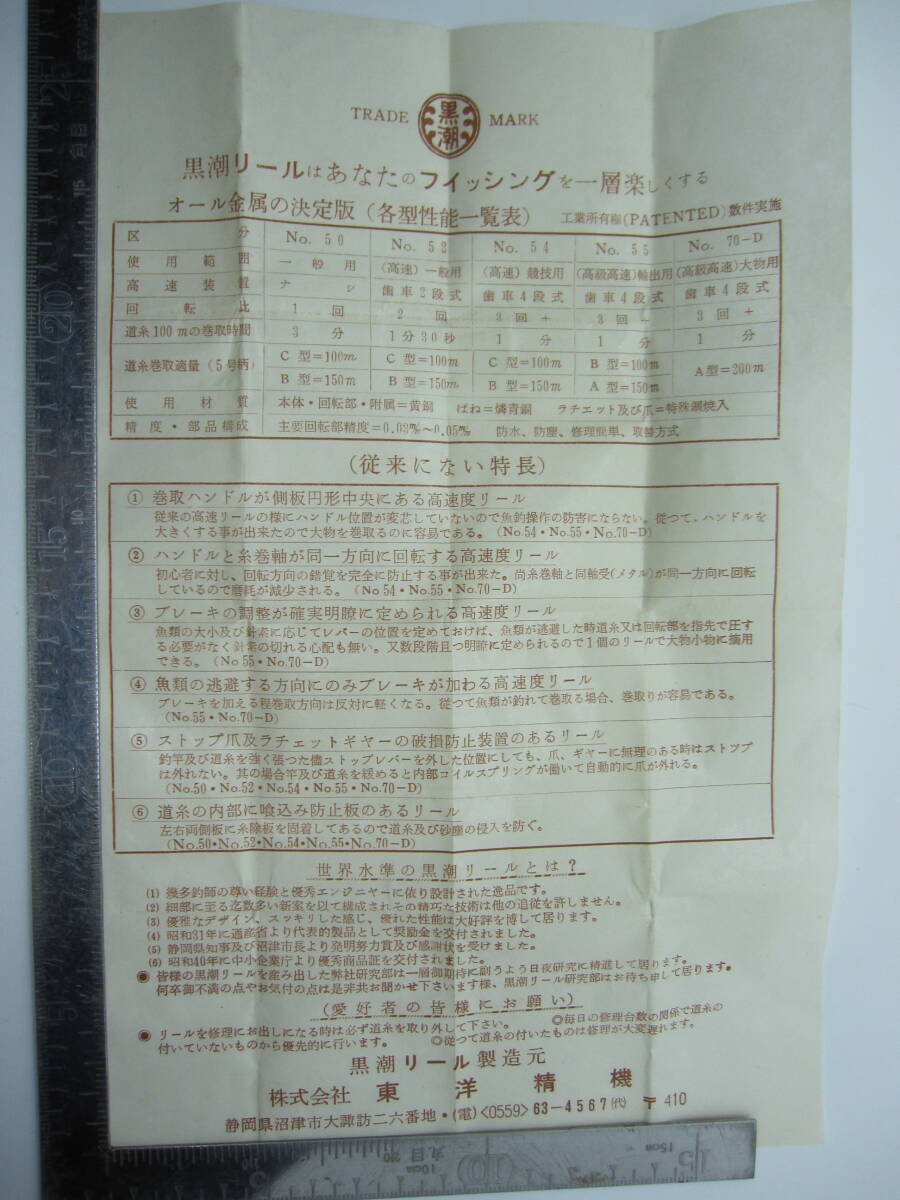 TRADE 黒潮 MARK
黒潮リールはあなたのフイッシングを一層楽しくする
オール金属の決定版(各型性能一覧表) 工業所有権(PATENTED)数件実施
区分 No. 50 No. 52 No. 54 No. 55 No. 70-D
使用範囲 一般用 (高速)一般用 (高速)競技用 (高級高速)輸出用 (高級高速)大物用
高速装置 ナシ 歯車2段式 歯車4段式 歯車4段式 歯車4段式
回転比 1回 2回 3回+ 3回- 3回+
道糸100mの巻取時間 3分 1分30秒 1分 1分 1分
道糸巻取適量(5号柄) C型=100m C型=100m C型=100m B型=100m A型=200m
B型=150m B型=150m B型=150m A型=150m
使用材質 本体・回転部・附属=黄銅 ばね=燐青銅 ラチェット及び爪=特殊鋼焼入
精度・部品構成 主要回転部精度=0.03㎜~0.05㎜ 防水、防塵、修理簡単、取替方式
(従来にない特長)
① 巻取ハンドルが側板円形中央にある高速度リール
従来の高速リールの様にハンドル位置が変芯していないので魚釣操作の防害にならない。従つて、ハンドルを
大きくする事が出来たので大物を巻取るのに容易である。(No.54・No.55・No.70-D)
② ハンドルと糸巻軸が同一方向に回転する高速度リール
初心者に対し、回転方向の錯覚を完全に防止する事が出来た。尚糸巻軸と同軸受(メタル)が同一方向に回転
しているので磨耗が減少される。(No 54・No.55・No.70-D)
③ ブレーキの調整が確実明瞭に定められる高速度リール
魚類の大小及び針素に応じてレバーの位置を定めておけば、魚類が逃避した時道糸又は回転部を指先で圧す
る必要がなく針素の切れる心配も無い。又数段階且つ明瞭に定められるので1個のリールで大物小物に適用
できる。(No 55・No.70-D)
④ 魚類の逃避する方向にのみブレーキが加わる高速度リール
ブレーキを加える程巻取方向は反対に軽くなる。従つて魚類が釣れて巻取る場合、巻取りが容易である。
(No.55・No.70-D)
⑤ ストップ爪及ラチェットギヤーの破損防止装置のあるリール
釣竿及び道糸を強く張つた儘ストップレバーを外した位置にしても、爪、ギャーに無理のある時はストップ
は外れない。其の場合竿及び道糸を緩めると内部コイルスプリングが働いて自動的に爪が外れる。
(No.50・No.52・No.54・No.55・No.70-D)
⑥ 道糸の内部に喰込み防止板のあるリール
左右両側板に糸除板を固着してあるので道糸及び砂塵の侵入を防ぐ。
(No.50・No.52・No.54・No.55・No.70-D)
世界水準の黒潮リールとは?
(1) 幾多釣師の尊い経験と優秀エンジニヤーに依り設計された逸品です。
(2) 細部に至る迄数多い新案を以て構成されその精巧な技術は他の追従を許しません。
(3) 優雅なデザイン、スッキリした感じ、優れた性能は大好評を博して居ります。
(4) 昭和31年に通産省より代表的製品として奨励金を交付されました。
(5) 静岡県知事及び沼津市長より発明努力賞及び感謝状を受けました。
(6) 昭和40年に中小企業庁より優秀商品証を交付されました。
◉ 皆様の黒潮リールを産み出した弊社研究部は一層御期待に副うよう日夜研究に精進して居ります。
何卒御不満の点やお気付の点は是非共お聞かせ下さいます様、黒潮リール研究部はお待ち申して居ります。
(愛好者の皆様にお願い)
◉ リールを修理にお出しになる時は必ず道糸を取り外して下さい。 ◎毎日の修理台数の関係で道糸の
付いていないものから優先的に行います。 ◎従つて道糸の付いたものは修理が大変遅れます。
黒潮リール製造元
株式会社 東洋精機
静岡県沼津市大諏訪二六番地・(電)<0559>63-4567(代) 〒410